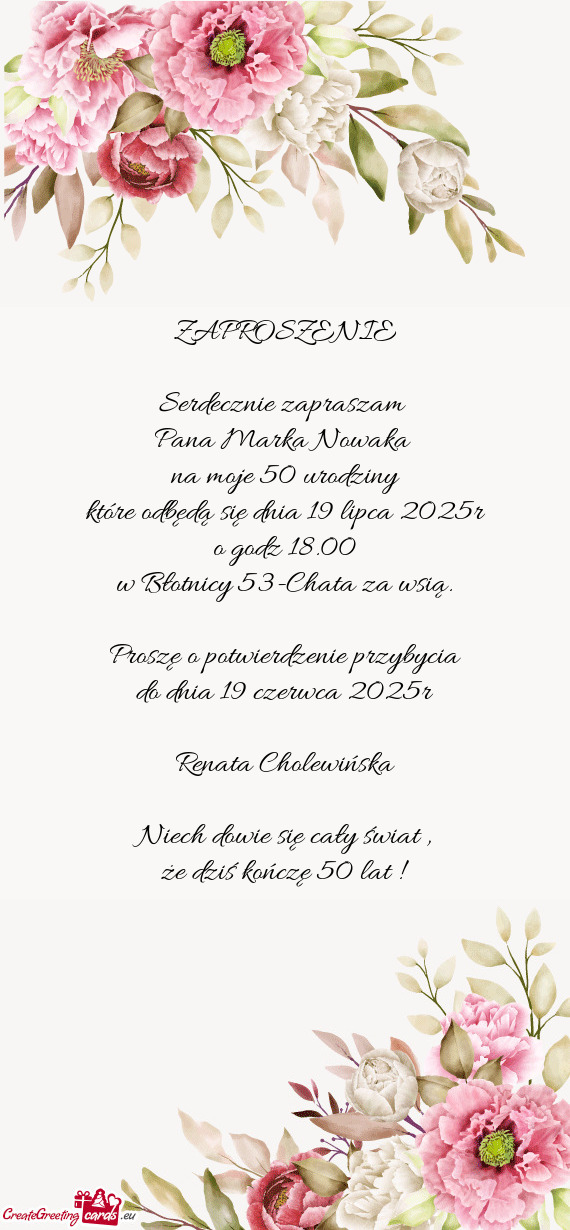 ZAPROSZENIE
Serdecznie zapraszam
Pana Marka Nowaka
na moje 50 urodziny
które odbędą się dnia 19 lipca 2025r
o godz 18.00
w Błotnicy 53-Chata za wsią.
Proszę o potwierdzenie przybycia
do dnia 19 czerwca 2025r
Renata Cholewińska
Niech dowie się cały świat ,
że dziś kończę 50 lat !
CreateGreeting cards .eu